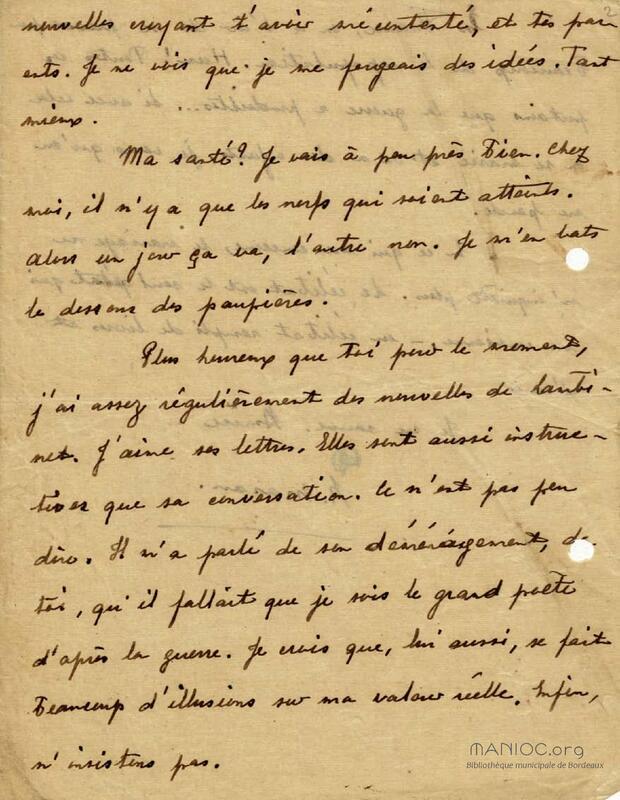 nouvelles croyant t'avoir mécontenté, et tes par
ents. Je ne vois que je me forgeais des idées. Tant
mieux.
Ma santé? Je vais à peu près bien. Chez
moi, il n'y a que les nerfs qui soient atteints.
Alors un jour ça va, l'autre non. Je m'en bats
le dessous des paupières.
Plus heureux que toi pour le moment,
j'ai assez régulièrement des nouvelles de Lauti-
net. J'aime ses lettres. Elles sont aussi instruc-
tives que sa conversation. Ce n'est pas peu
dire. Il m'a parlé de son déménagement, de
toi, qu'il fallait que je sois le grand poète
d'après la guerre. Je crois que, lui aussi, se fait
beaucoup d'illusions sur ma valeur réelle. Enfin,
n'insistons pas.
2
MANIOC.org
Bibliothèque municipale de Bordeaux